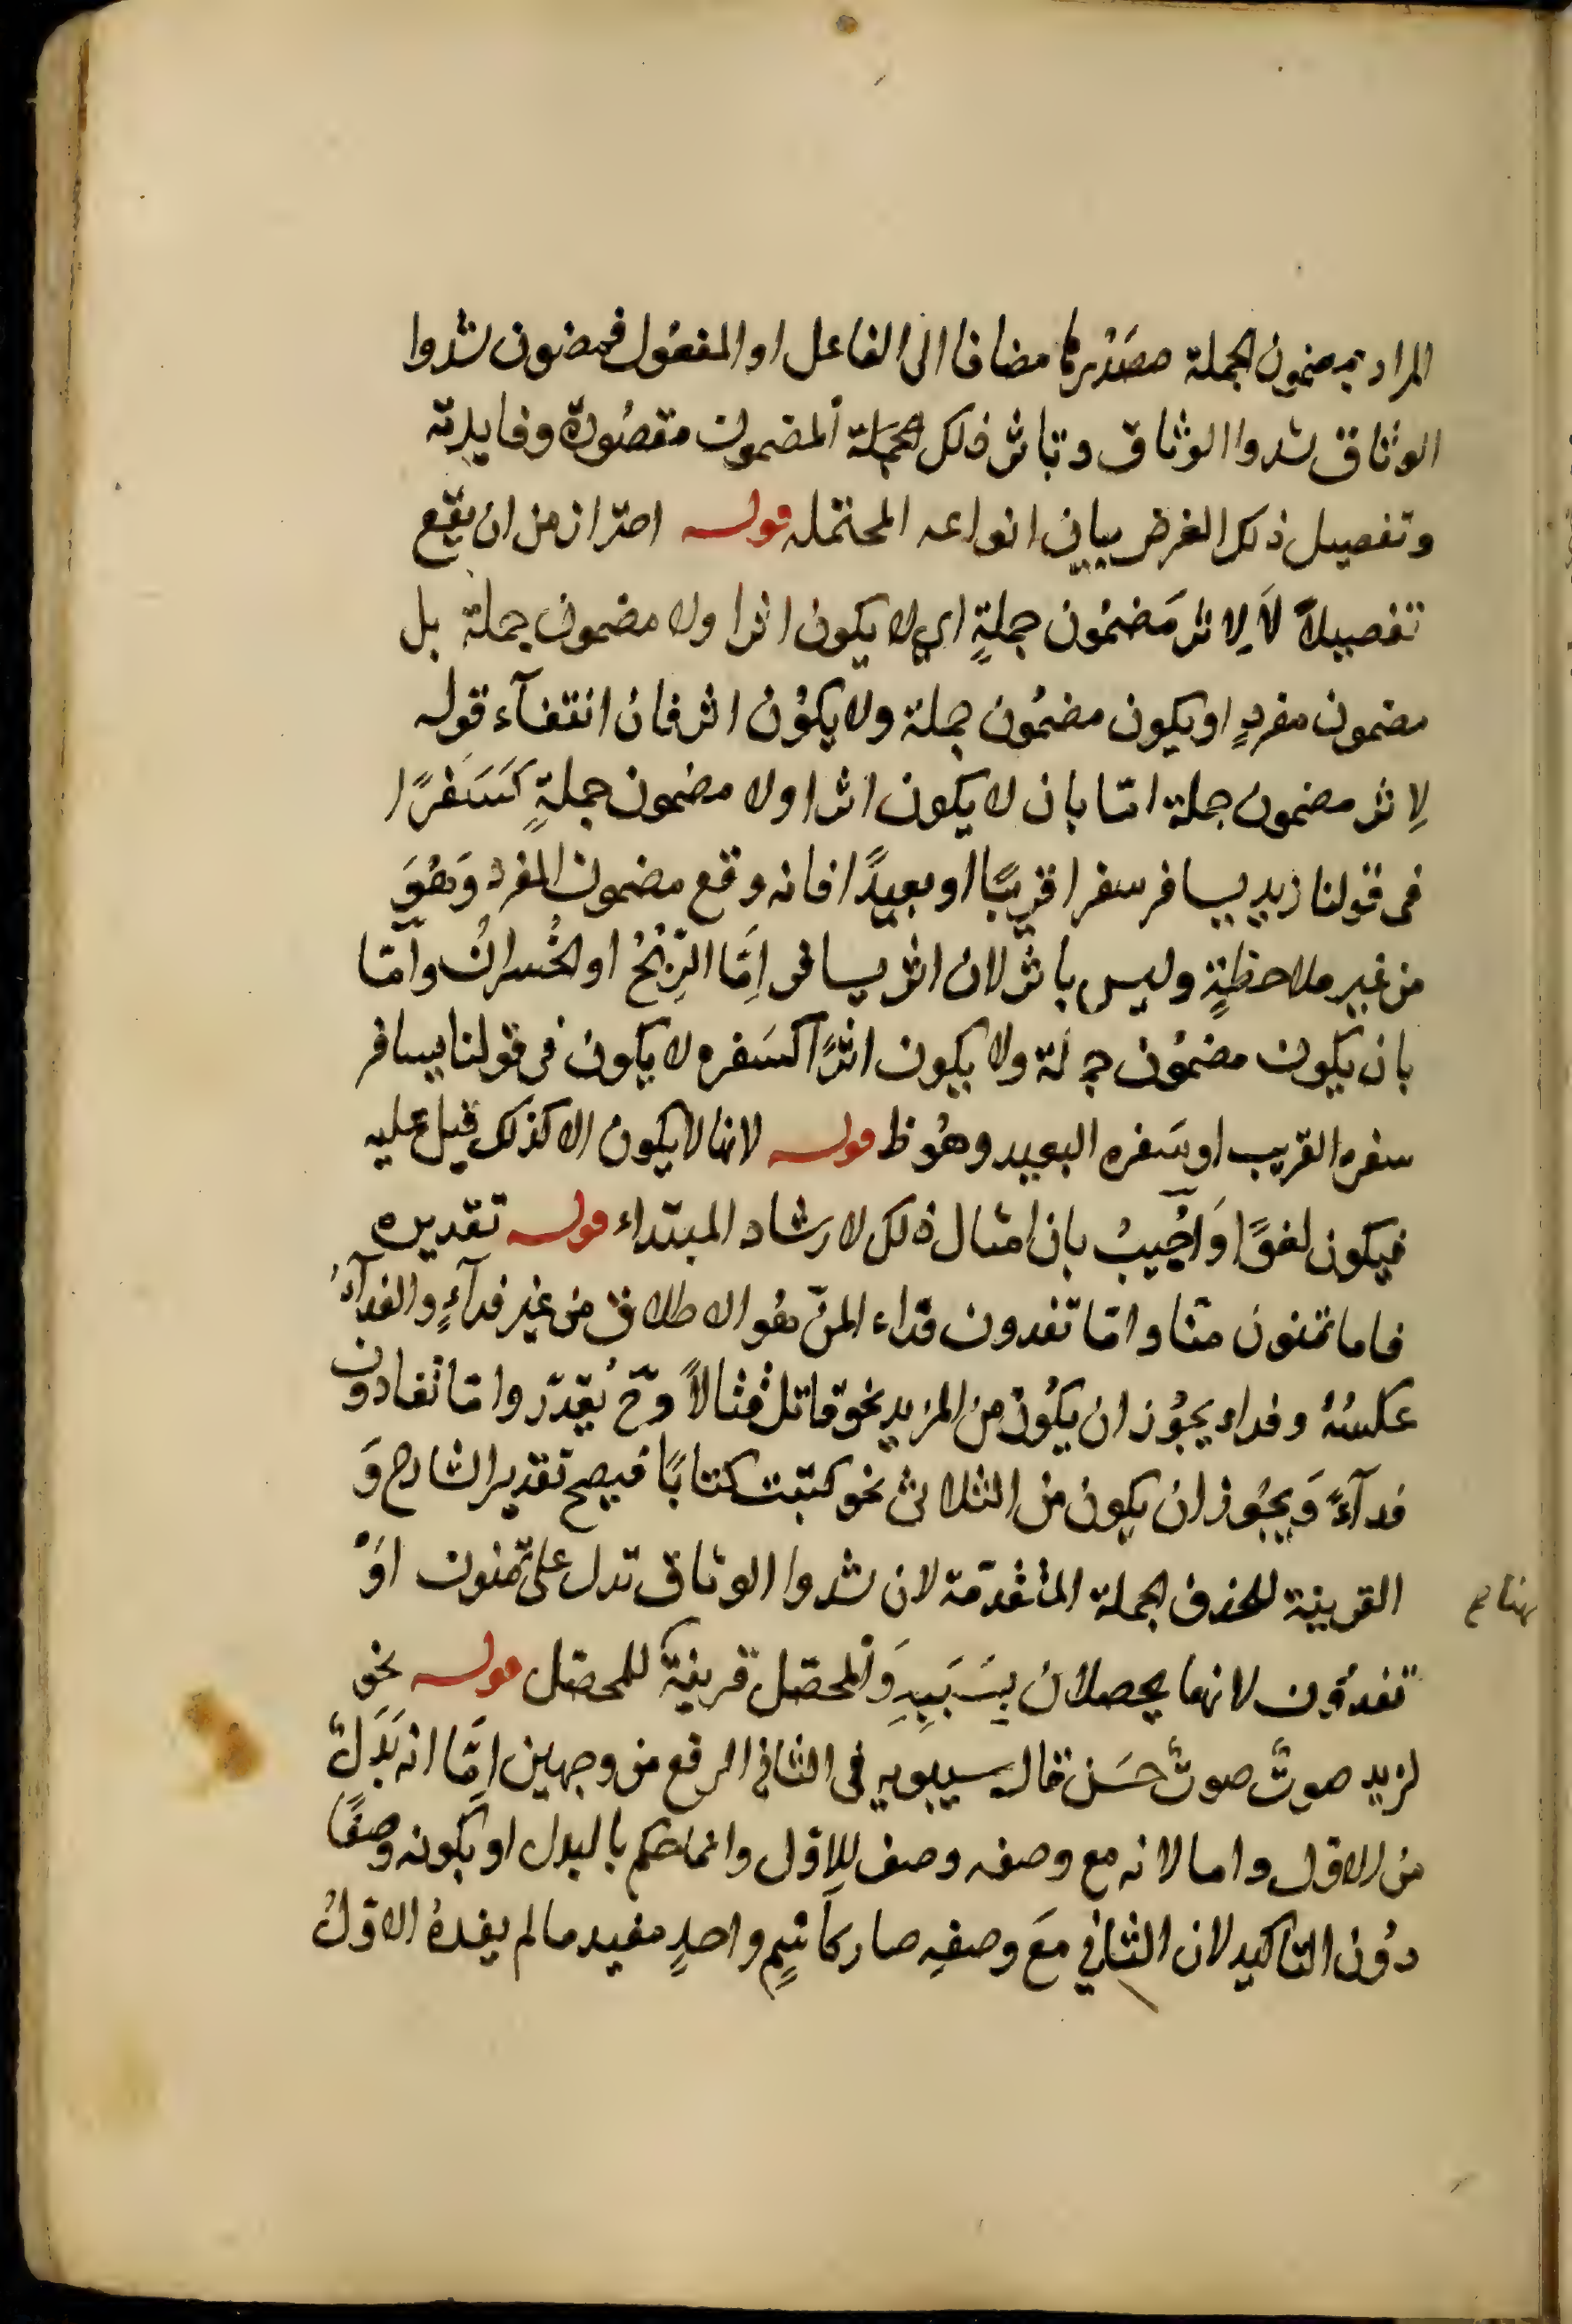 المراد بمضمون الجملة مصدرها مضافا الى الفاعل او المفعول فمضون شدوا
الوثاق شدوا الوثاق وتاثر ذلك الجملة المضمون مقصودة وفايدته
وتفصيل ذلك الغرض بيان انواعه المحتمله قوله احتراز من ان يقع
تفصيلاً لا لاثر مَضمُون جملةٍ اي لا يكون اثرا ولا مضمون جملة بل
مضمون مفردٍ او يكون مضمُون جملة ولا يكوُن اثر فان انتفآء قوله
لاِثر مضمون جملة امّا بان لا يكون اثرا ولا مضمون جملةٍ كَسَفرًا
فى قولنا زيد يسافر سفرا قريبًا او بعيدًا فانه وقع مضمون المفرد وَهُوَ
من غير ملاحظةٍ وليس باثر لان اثر يسافر اِمّا الرِّبْحُ او الخُسرانُ وآمّا
بان يكون مضمُون جملة ولا يكون اثرًا كسَفره لا يكون فى قولنا يسافر
سفره القريب او سَفره البعيد وهُو ظ قوله لانها لا يكون الا كذلك قيل عليه
فيكون لغوًا وَاُجيبُ بان امثال ذلك لارشاد المبتداء قوله تقديره
فاما تمنون منّا وامّا تفدون فداء المنّ هُو الاطلاق من غير فدآءٍ والفدآءُ
عكسُهُ وفداء يجُوز ان يكُون من المزيد نحو قاتل قتالاً وحّ يُقدّر وامّا تفادون
فدآءً وَيجُوز ان يكون من الثلاثى نحو كتبت كتابًا فيصح تقدير الشارح وَ
القرينة للحذف الجملة المتقدّمة لان شدوا الوثاق تدل على تمنون اَوْ
تفدوُن لانهما يحصلان بِسَبَبِهِ وَالمحصّل قرينة للمحصّل قوله نحو
لزيد صوتٌ صوتٌ حسَن قال سيبويه فى الثانى الرفع من وجهين اِمّا انه بَدَلٌ
من الاوّل واما لانه مع وصفه وصف للاوّل وانما حكم بالبدل او بكونه وصفًا
دوُن التاكيد لان الثاني مَعَ وصفِه صار كاسمٍ واحدٍ مفيد ما لم يفدهُ الاوّلُ